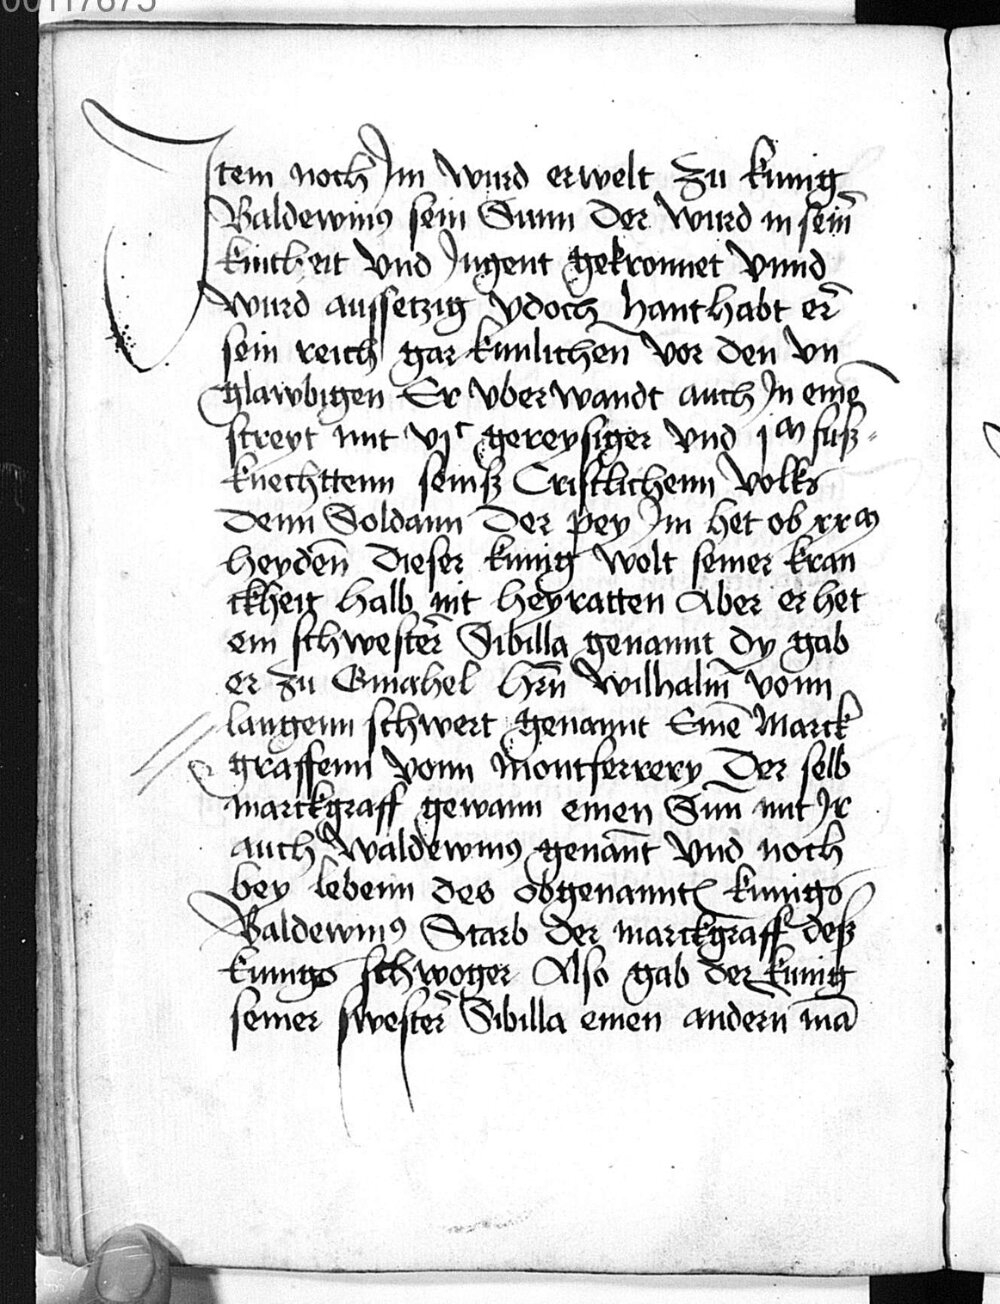 00117675
Item noch Im wurd erwelt zu kunig
Baldewinus sein Sunn der wurd in sein̄
kintheit vnd Jugent gekronnet vnnd
wurd aussetzig ydoch hanthabt er
sein reich gar kunlichen vor den vn
glawbigen Er vberwandt auch In eine̅
streyt mit vjc gereysiger vnd jm fuß=
knechttenn seinß Cristlichenn volks
denn Soldann der pey Im het ob xxm
heyden̄ dieser kunig wolt seiner kran
ckheit halb nit heyratten Aber er het
ein schwester Sibilla genannt dy gab
er zu Gmahel hrn̄ wilhalm̄ vonn
langenn schwert genannt Eine̅ Marck
graffenn vonn Montferrery Der selb
marckgraff gewann einen Sun̄ mit Ir
auch waldewinus genan̄t vnd noch
bey lebenn des obgenannten kunigs
Baldewinus Starb der marckgraff deß
kunigs schwoger Also gab der kunig
seiner swester Sibilla einen andern ma̅